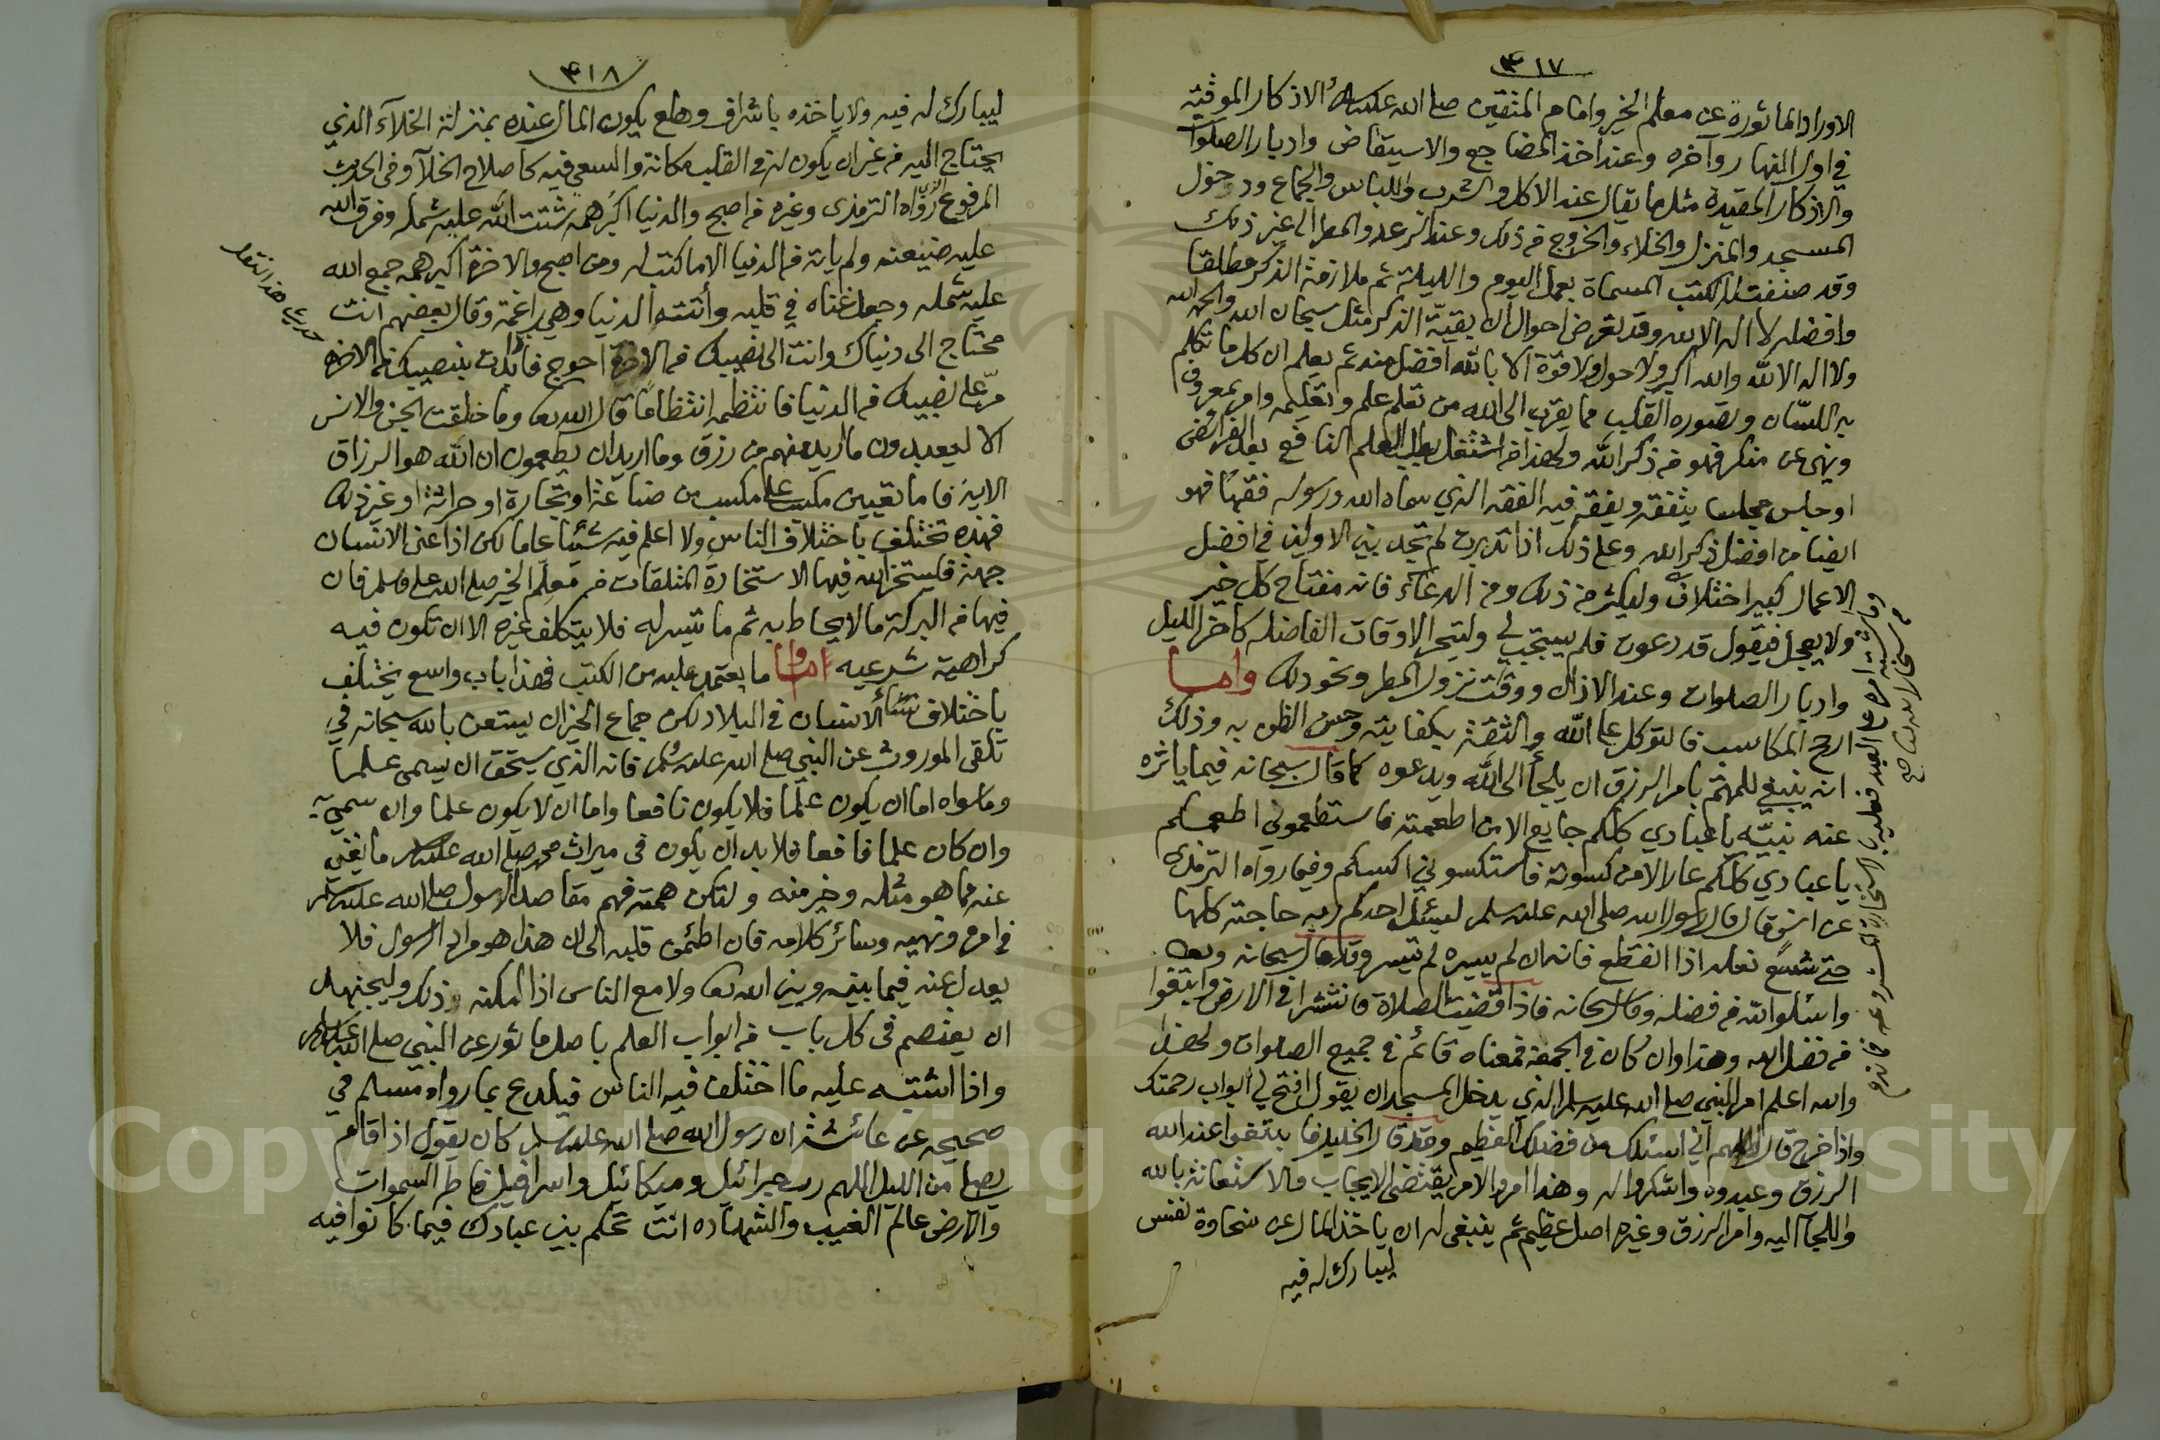 ٤١٧
الاوراد الماثورة عن معلم الخير وامام المتقين صلى الله عليه وسلم الاذكار الموقتة
في اول النهار وآخره وعند اخذ المضاجع والاستيقاض وادبار الصلوات
والاذكار المقيدة مثل ما يقال عند الاكل والشرب واللباس والجماع ودخول
المسجد والمنزل والخلاء والخروج من ذلك وعند الرعد والمطر الى غير ذلك
وقد صنفت له الكتب المسماة بعمل اليوم والليلة ثم ملازمة الذكر مطلقا
وافضله لا اله الا الله وقد تعرض احوال ان بقية الذكر مثل سبحان الله والحمد لله
ولا اله الا الله والله اكبر ولا حول ولا قوة الا بالله افضل منه ثم يعلم ان كل ما تكلم
به اللسان وتصوره القلب مما يقرب الى الله من تعلم علم وتعليمه وامر بمعروف
ونهي عن منكر فهو من ذكر الله ولهذا من اشتغل بطلب العلم النافع بعد الفرائض
او جلس مجلسا يتفقه ويفقه فيه الفقه الذي سماه الله ورسوله فقها فهو
ايضا من افضل ذكر الله وعلى ذلك اذا تدبرت لم تجد بين الاولين في افضل
الاعمال كبير اختلاف وليكثر من ذلك ومن الدعاء فانه مفتاح كل خير
ولا يعجل فيقول قد دعوت فلم يستجب لي وليتحر الاوقات الفاضلة كآخر الليل
وادبار الصلوات وعند الاذان ووقت نزول المطر ونحو ذلك واما
ارجح المكاسب فالتوكل على الله والثقة بكفايته وحسن الظن به وذلك
انه ينبغي للمهتم بامر الرزق ان يلجأ الى الله ويدعوه كما قال سبحانه فيما ياثره
عنه نبيه يا عبادي كلكم جايع الا من اطعمته فاستطعموني اطعمكم
يا عبادي كلكم عار الا من كسوته فاستكسوني اكسكم وفيما رواه الترمذي
عن انس قال قال رسول الله صلى الله عليه وسلم ليسئل احدكم ربه حاجته كلها
حتى شسع نعله اذا انقطع فانه ان لم ييسره لم تيسر وقد قال سبحانه وتعالى
واسئلوا الله من فضله وقال سبحانه فاذا قضيت الصلاة فانتشروا في الارض وابتغوا
من فضل الله وهذا وان كان في الجمعة فمعناه قائم في جميع الصلوات ولهذا
والله اعلم امر النبي صلى الله عليه وسلم الذي يدخل المسجد ان يقول افتح لي ابواب رحمتك
واذا خرج قال اللهم اني اسئلك من فضلك العظيم وقد قال الخليل فابتغوا عند الله
الرزق وعبدوه واشكروا له وهذا امر والامر يقتضي الايجاب فالاستعانة بالله
واللجأ اليه وامر الرزق وغيره اصل عظيم ثم ينبغي له ان ياخذ المال عن سخاوة نفس
ليبارك له فيه
٤١٨
ليبارك له فيه ولا ياخذه باشراف وهلع يكون المال عنده بمنزلة الخلآء الذي
يحتاج اليه من غير ان يكون له في القلب مكانة والسعي فيه كاصلاح الخلآء وفي الحديث
المرفوع الذي رواه الترمذي وغيره من اصبح والدنيا اكبر همه شتت الله عليه شمله وفرق الله
عليه ضيعته ولم ياته من الدنيا الا ما كتب له ومن اصبح والاخرة اكبر همه جمع الله
عليه شمله وجعل غناه في قلبه وأتته الدنيا وهي راغمة وقال بعضهم انت
محتاج الى دنياك وانت الى نصيبك من الاخرة احوج فان بدات بنصيبك من الاخرة
مر على نصيبك من الدنيا فانتظمه انتظاما قال الله تعالى وما خلقت الجن والانس
الا ليعبدون ما اريد منهم من رزق وما اريد ان يطعمون ان الله هو الرزاق
الاية فاما تعيين مكسب على مكسب من صناعة او تجارة او حراثة او غير ذلك
فهذه تختلف باختلاف الناس ولا اعلم فيه شيئا عاما لكن اذا عن الانسان
جهة فليستخر الله فيها الاستخارة المتلقات من معلم الخير صلى الله عليه وسلم فان
فيها من البركة ما لا يحاط به ثم ما تيسر له فلا يتكلف غيره الا ان تكون فيه
كراهة شرعيه واما ما يعتمد عليه من الكتب فهذا باب واسع يختلف
باختلاف نشأ الانسان في البلاد لكن جماع الخير ان يستعن بالله سبحانه في
تلقي الموروث عن النبي صلى الله عليه وسلم فانه الذي يستحق ان يسمى علما
وما سواه اما ان يكون علما فلا يكون نافعا واما ان لا يكون علما وان سمي به
وان كان علما نافعا فلا بد ان يكون في ميراث محمد صلى الله عليه وسلم ما يغني
عنه مما هو مثله وخير منه ولتكن همته فهم مقاصد الرسول صلى الله عليه وسلم
في امره ونهيه وسائر كلامه فان اطمئن قلبه الى ان هذا هو مراد الرسول فلا
يعدل عنه فيما بينه وبين الله تعالى ولا مع الناس اذا امكنه ذلك وليجتهد
ان يعتصم في كل باب من ابواب العلم باصل ماثور عن النبي صلى الله عليه وسلم
واذا اشتبه عليه ما اختلف فيه الناس فيلدع بما رواه مسلم في
صحيحه عن عائشة ان رسول الله صلى الله عليه وسلم كان يقول اذا قام
يصلي من الليل اللهم رب جبرائيل وميكائيل واسرافيل فاطر السموات
والارض عالم الغيب والشهاده انت تحكم بين عبادك فيما كانوا فيه
Copyright © King Saud University